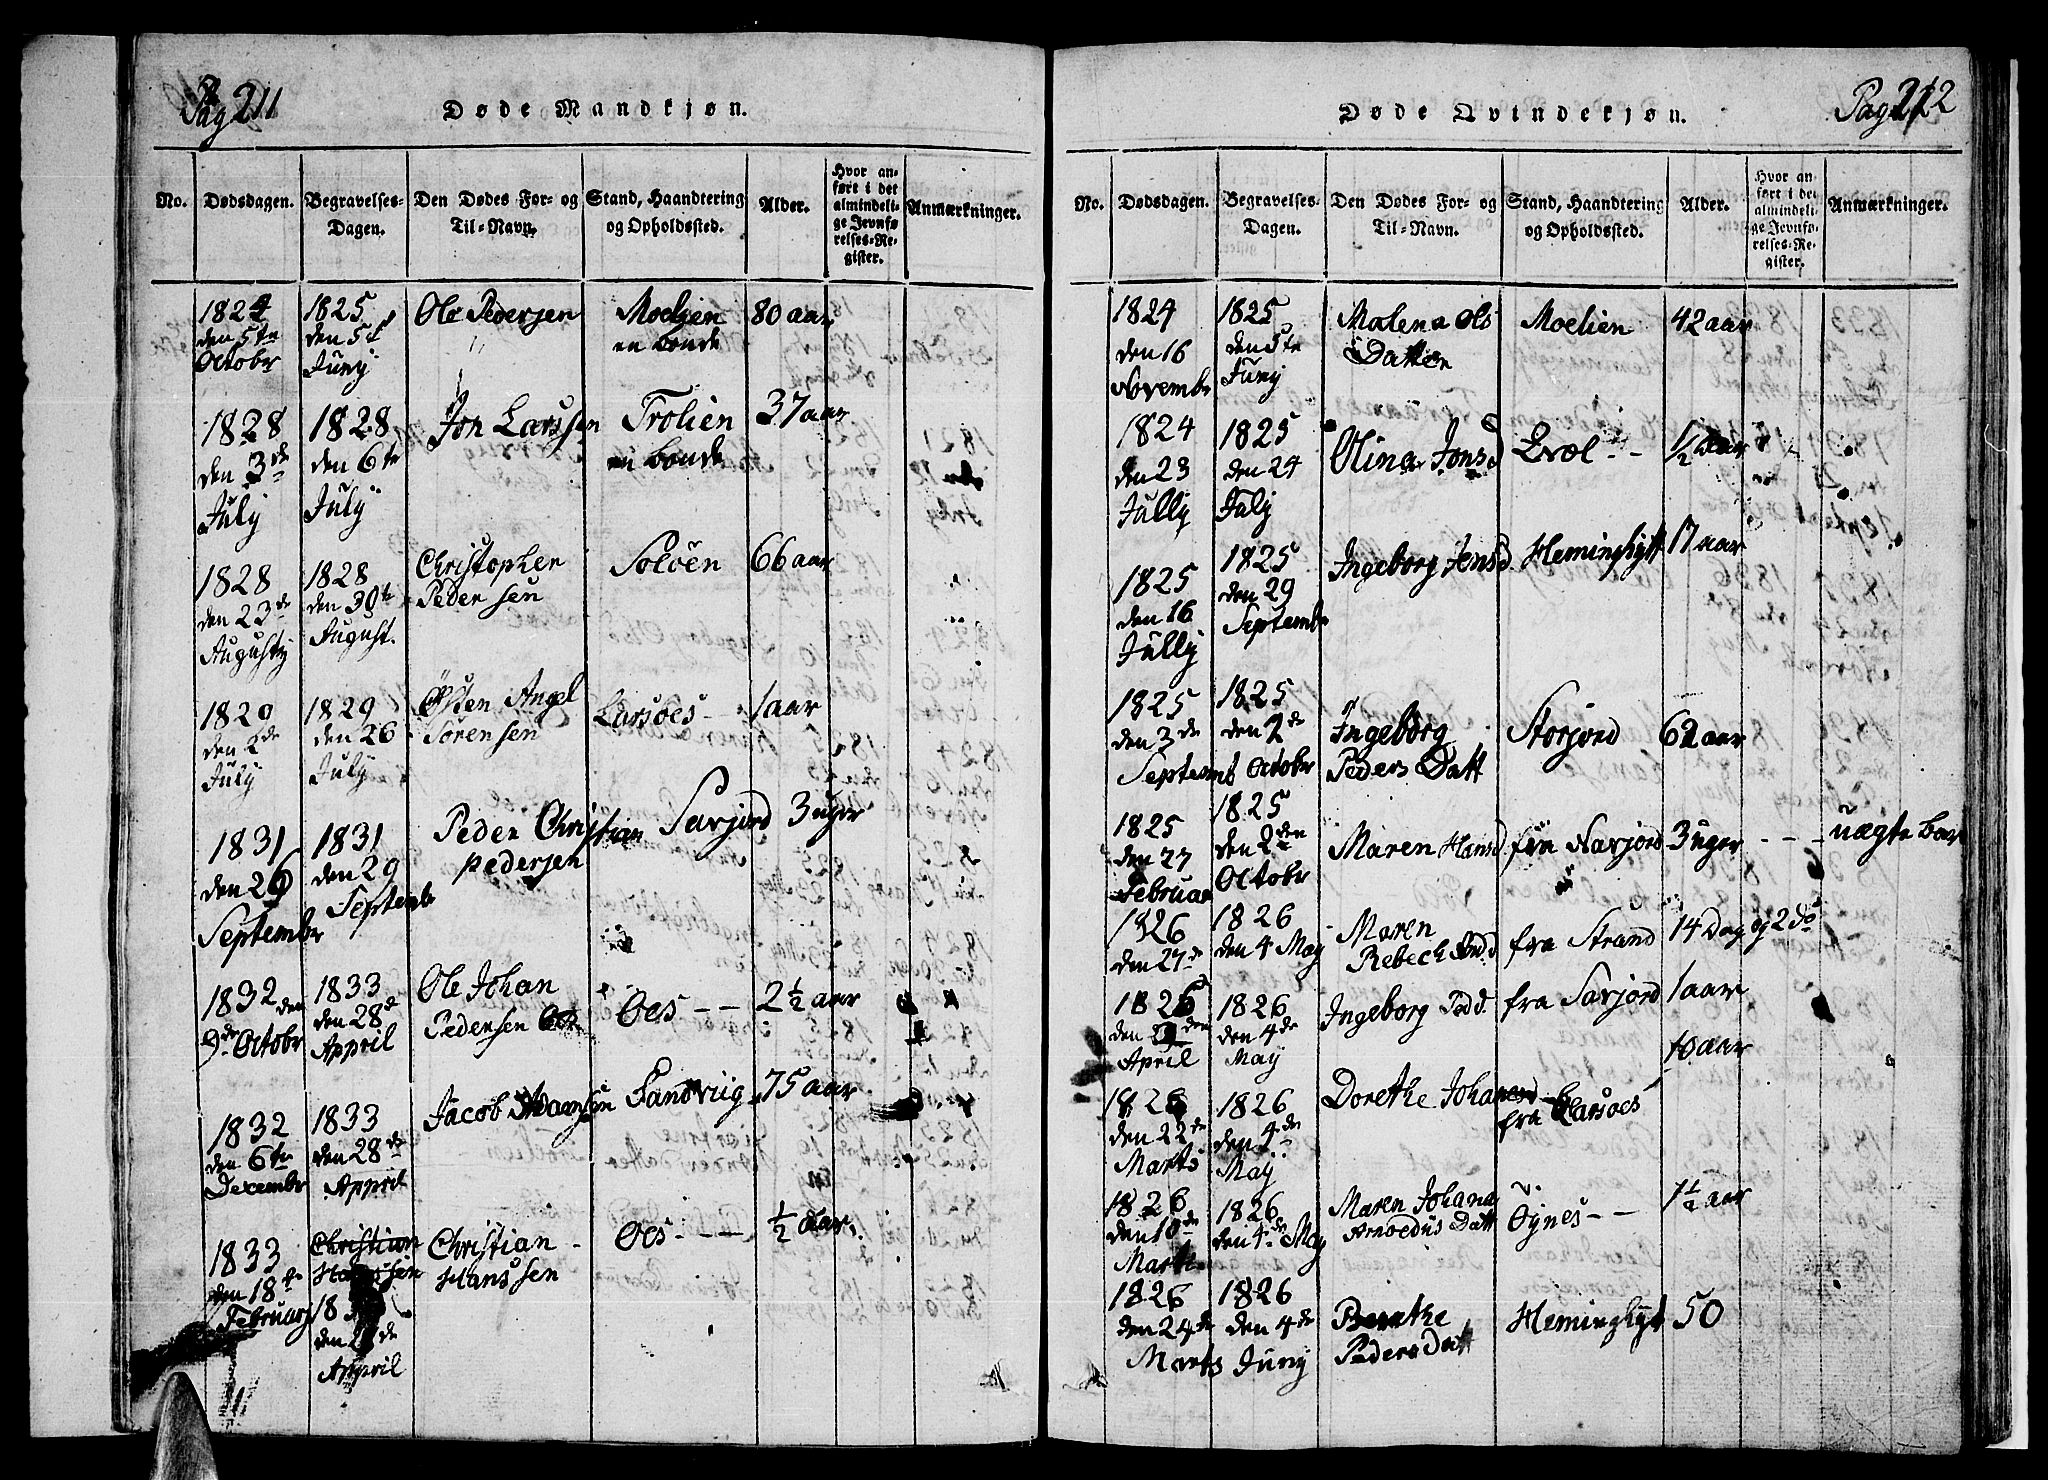 Pag 211
Døde Mandkjøn.
No.
Dødsdagen.
Begravelses-
Dagen.
Den Dødes For- og
Til-Navn.
Stand, Haandtering
og Opholdssted.
Alder.
Hvor an-
ført i det
almindeli-
ge Jevnfø-
relses-Re-
gister.
Anmærkninger.
1824
den 5te
Octobr
1825
den 5t
Junij
Ole Pedersen
Moelien
en bonde
80 aar
1828
den 3de
Julij
1828
den 6te
Julij
Jon Larssen
Trolien
en bonde
37 aar
1828
den 23de
Augustij
1828
den 30te
August.
Christopher
Pedersen
Soløen
66 aar
1829
den 2de
Julij
1829
den 26
Julij
Østen Angel
Sørensen
Larsoes -
1 aar
1831
den 26
Septembr
1831
den 29
Septembr
Peder Christian
Pedersen
Sarjord
3 uger
1832 den
9de Octobr
1833
den 28de
Appril
Ole Johan
Pedersen
Oes - -
2 1/2 aar
1832
den 6te
Decembr
1833
den 28de
Appril
Jacob Adamsen
Sandviig
75 aar
1833
den 18de
Februarj
Christian
Hanssen
18
den 28de
Appril
Christian
Hanssen
Oes - - -
1/2 aar
Pag 212
Døde Qvindekjøn.
No.
Dødsdagen.
Begravelses-
Dagen.
Den Dødes For- og
Til-Navn.
Stand, Haandtering
og Opholdssted.
Alder.
Hvor an-
ført i det
almindeli-
ge Jevnfø-
relses-Re-
gister.
Anmærkninger.
1824
den 16
Novembr
1825
den 5te
Junij
Malena Ols
Datter
Moelien
42 aar
1824
den 23
Jullij
1825
den 24
Julij
Olina Jonsd
Evæl - -
1/2 aar
1825
den 16
Jullij
1825
den 29
Septembr
Ingeborg Jensd
Heminghytt
17 aar
1825
den 3de
Septembr
1825
den 2de
Octobr
Ingeborg
Peders Datt
Storjord
62 aar
1825
den 27
Februar
1825
den 2den
Octobr
Maren Hansd
fra Sarjord
3 uger - - -
uægte bar
1826
den 27de
1826
den 4 May
Maren
Rebech
fra Strand
14 Dag
1826
den 9den
April
1826
den 4de
May
Ingeborg Pedd.
fra Sarjord
1 aar
1826
den 22de
Marts
1826
den 4de
May
Dorethe Johansd
fra Larsoes
10 aar
1826
den 10de
Marts
1826
den 4de May
Maren Johana
Arnoldus Datt
Øynes - -
1 1/2 aar
1826
den 24de
Marts
1826
den 4de
Junij
Berethe
Pedersdatt
Heminghyt
50